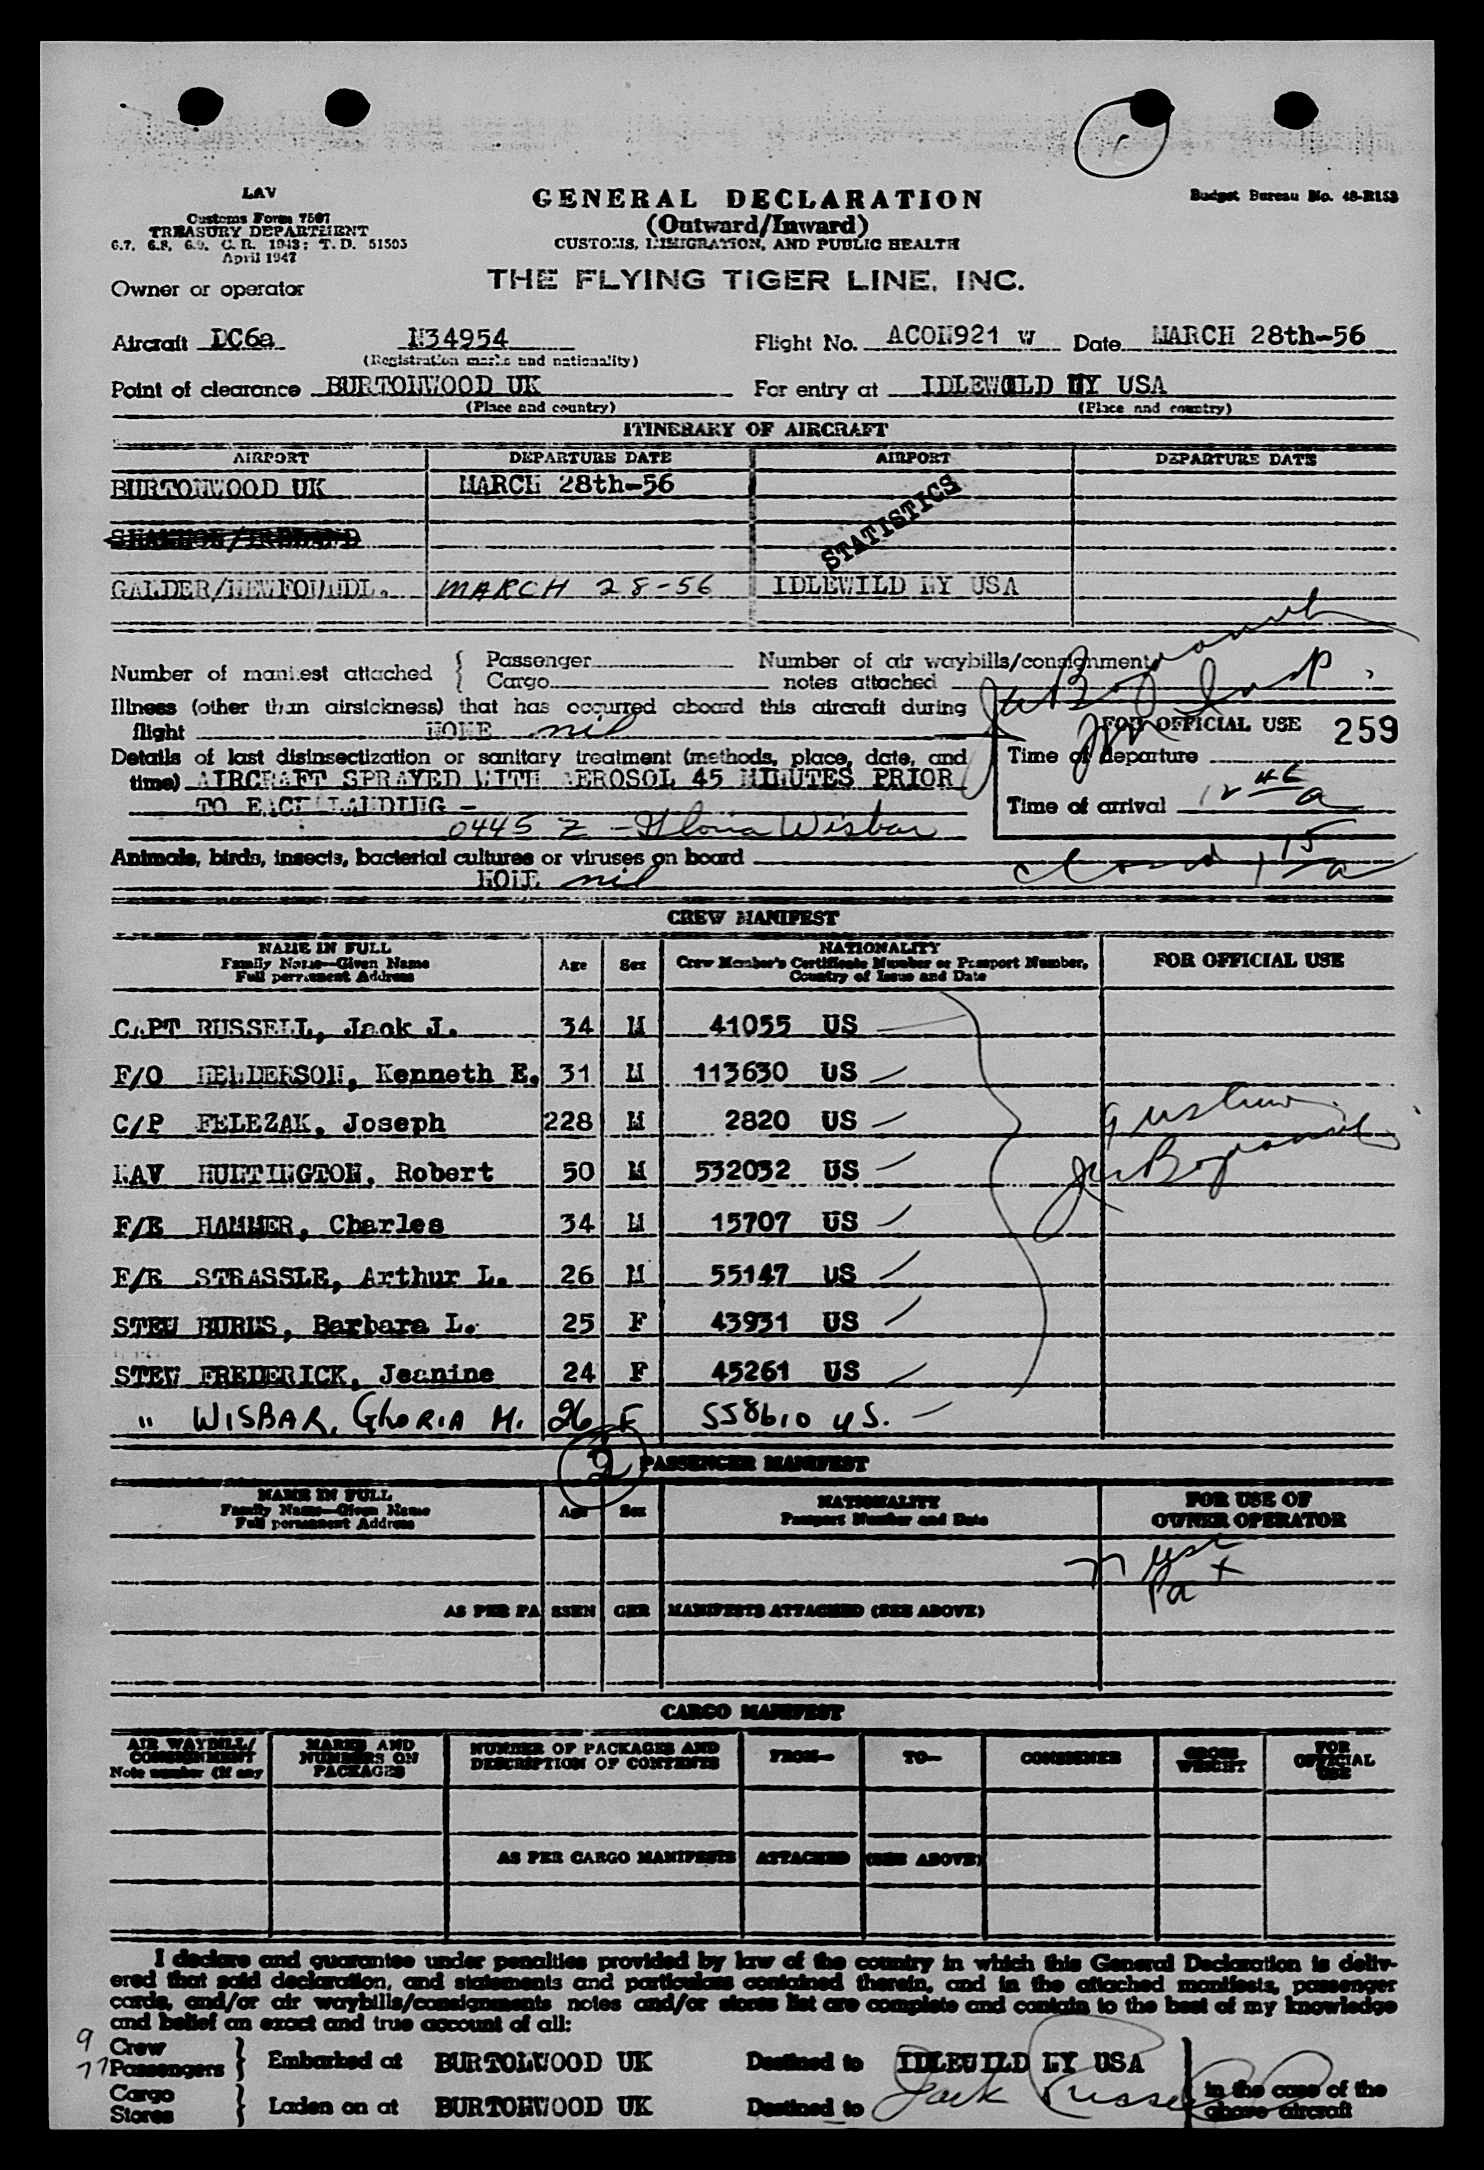 LAV
Customs Form 7507
TREASURY DEPARTMENT
6.7, 6.8, 6.9, C. R. 1943; T. D. 51505
April 1947
GENERAL DECLARATION
(Outward/Inward)
CUSTOMS, IMMIGRATION, AND PUBLIC HEALTH
Budget Bureau No. 48-R153
THE FLYING TIGER LINE, INC.
Owner or operator
Aircraft DC6a N34954 Flight No. ACOM921 W Date MARCH 28th-56
(Registration marks and nationality)
Point of clearance BURTONWOOD UK For entry at IDLEWILD NY USA
(Place and country) (Place and country)
ITINERARY OF AIRCRAFT
AIRPORT DEPARTURE DATE AIRPORT DEPARTURE DATE
BURTONWOOD UK MARCH 28th-56
STATISTICS
SHANNON/IRELAND
GALDER/NEWFOUNDL. MARCH 28-56 IDLEWILD NY USA
Number of manifest attached { Passenger Number of air waybills/consignment
Cargo notes attached
Illness (other than airsickness) that has occurred aboard this aircraft during
flight NONE nil
FOR OFFICIAL USE 259
Details of last disinsectization or sanitary treatment (methods, place, date, and
time) AIRCRAFT SPRAYED WITH AEROSOL 45 MINUTES PRIOR
TO EACH LANDING -
0445 Z - Gloria Wisbar
Time of departure
Time of arrival 12 46 a
Animals, birds, insects, bacterial cultures or viruses on board
NONE nil
1 15 a
CREW MANIFEST
NAME IN FULL
Family Name—Given Name
Full permanent Address
Age Sex
NATIONALITY
Crew Member's Certificate Number or Passport Number,
Country of Issue and Date
FOR OFFICIAL USE
CAPT RUSSELL, Jack J. 34 M 41055 US
F/O HENDERSON, Kenneth E. 31 M 113630 US
C/P FELEZAK, Joseph 228 M 2820 US
NAV HUNTINGTON, Robert 50 M 532032 US
F/E HAMMER, Charles 34 M 15707 US
F/E STRASSLE, Arthur L. 26 M 55147 US
STEW BURNS, Barbara L. 25 F 43931 US
STEW FREDERICK, Jeanine 24 F 45261 US
" WISBAR, GLORIA M. 26 F 558610 US.
9
PASSENGER MANIFEST
NAME IN FULL
Family Name—Given Name
Full permanent Address
Age Sex
NATIONALITY
Passport Number and Date
FOR USE OF
OWNER OPERATOR
AS PER PASSENGER MANIFESTS ATTACHED (SEE ABOVE)
CARGO MANIFEST
AIR WAYBILL/
CONSIGNMENT
Note number (if any
MARKS AND
NUMBERS ON
PACKAGES
NUMBER OF PACKAGES AND
DESCRIPTION OF CONTENTS
FROM—
TO—
CONSIGNEE
GROSS
WEIGHT
FOR
OFFICIAL
USE
AS PER CARGO MANIFESTS ATTACHED (SEE ABOVE)
I declare and guarantee under penalties provided by law of the country in which this General Declaration is deliv-
ered that said declaration, and statements and particulars contained therein, and in the attached manifests, passenger
cards, and/or air waybills/consignments notes and/or stores list are complete and contain to the best of my knowledge
and belief an exact and true account of all:
9 Crew
77 Passengers } Embarked at BURTONWOOD UK Destined to IDLEWILD NY USA
Cargo
Stores } Laden on at BURTONWOOD UK Destined to
Jack Russell
in the case of the
above aircraft